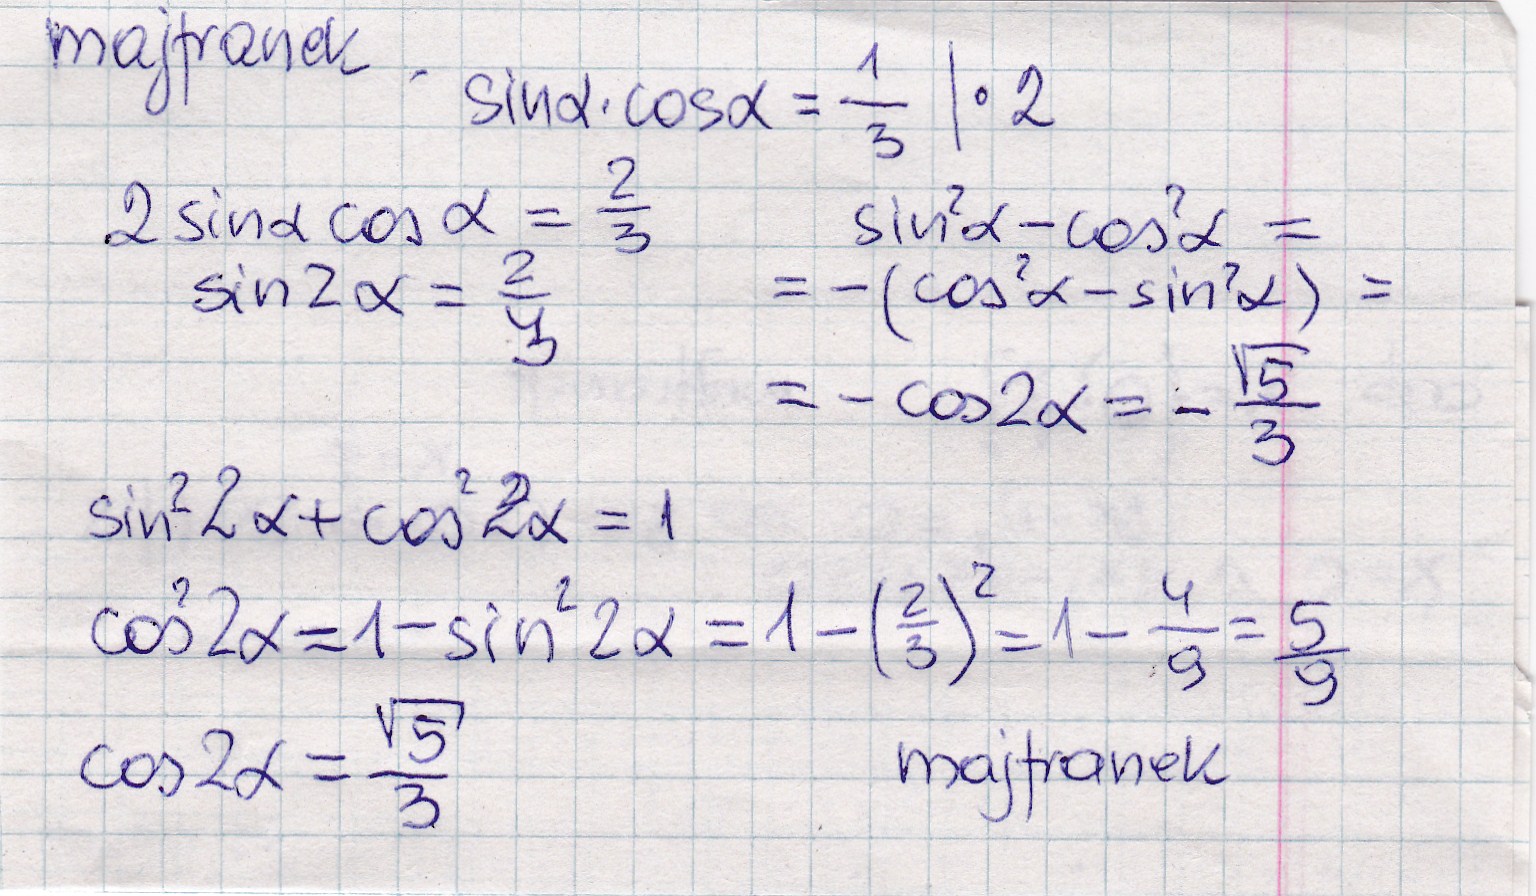 majfranek
sinα·cosα = 1/3 |·2
2 sinα cos α = 2/3
sin2α = 2/3
sin²α - cos²α =
= -(cos²α - sin²α) =
= - cos2α = - √5/3
sin²2α + cos²2α = 1
cos²2α = 1 - sin²2α = 1 - (2/3)² = 1 - 4/9 = 5/9
cos2α = √5/3
majfranek